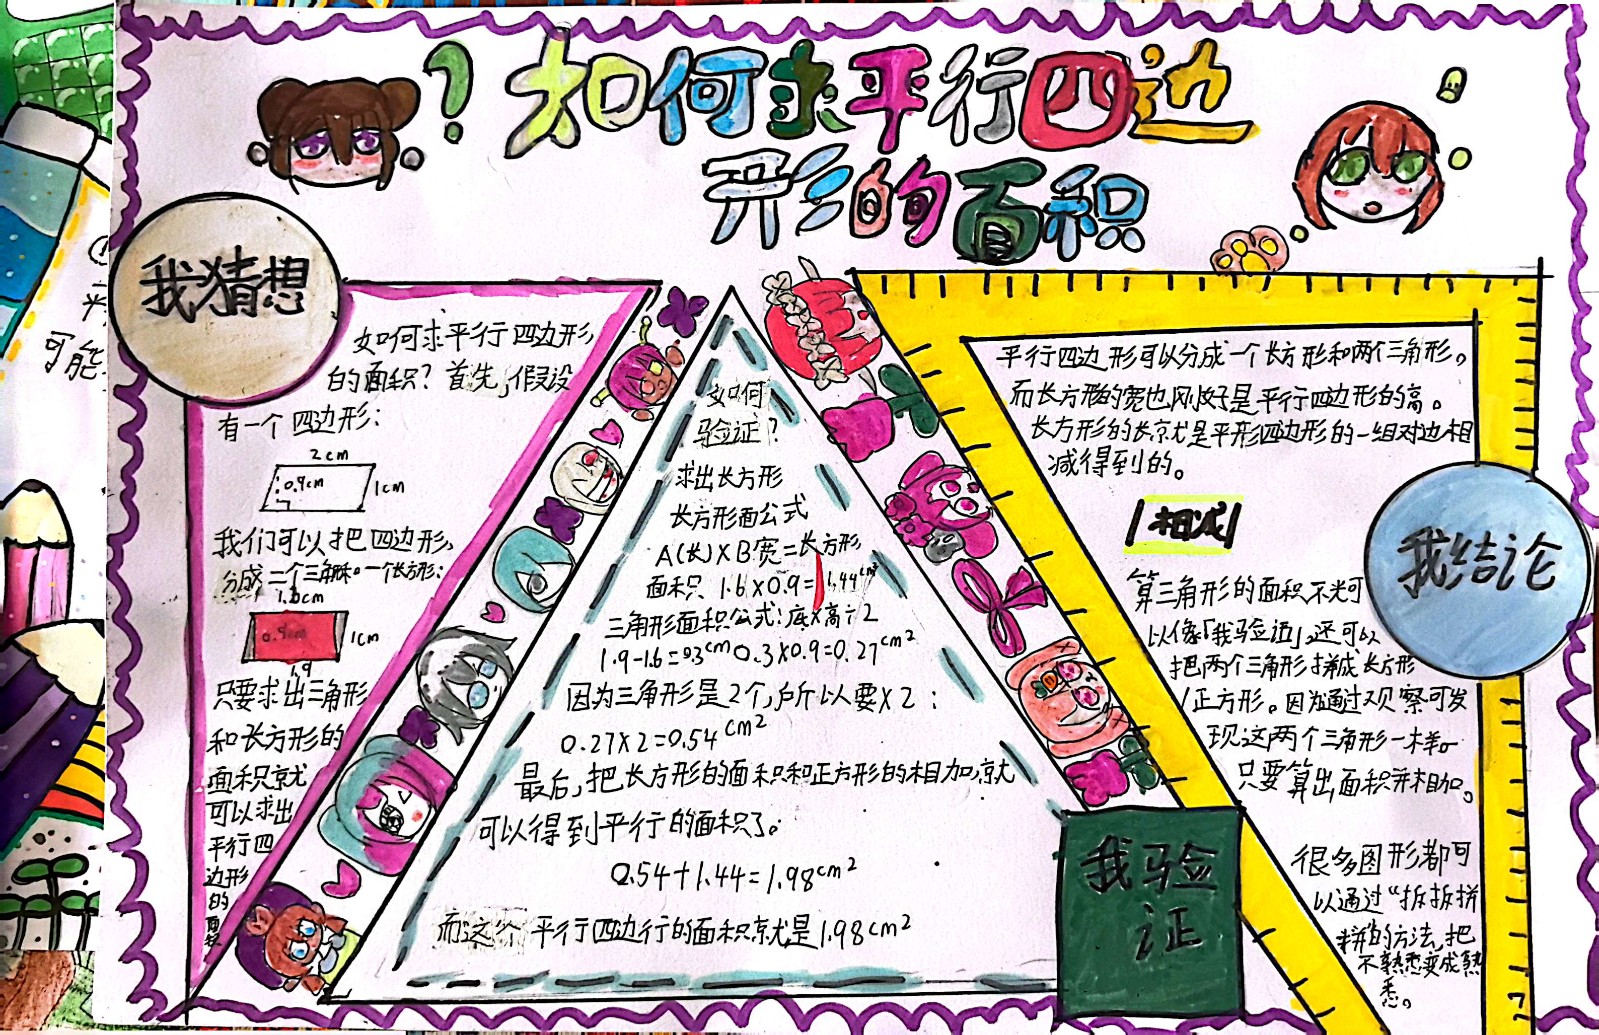 如何求平行四边
形的面积
我猜想
如何求平行四边形
的面积？首先，假设
有一个四边形：
2cm
0.9cm
1cm
我们可以把四边形，
分成二个三角形。一个长方形：
1.6cm
0.9cm
1cm
1.9
只要求出三角形
和长方形的
面积就
可以求出
平行四
边形
的
面积
如何
验证？
求出长方形
长方形面公式
A(长)X B宽=长方形
面积 1.6X0.9=1.44cm²
三角形面积公式：底X高÷2
1.9-1.6=0.3cm 0.3X0.9=0.27cm²
因为三角形是2个，所以要X2：
0.27X2=0.54cm²
最后，把长方形的面积和正方形的相加，就
可以得到平行的面积了。
0.54+1.44=1.98cm²
而这个 平行四边行的面积就是1.98cm²
我验
证
平行四边形可以分成一个长方形和两个三角形。
而长方形的宽也刚好是平行四边形的高。
长方形的长就是平形四边形的一组对边相
减得到的。
|相减|
我结论
算三角形的面积不光可
以像「我验证」，还可以
把两个三角形拼成长方形
/正方形。因为通过观察可发
现这两个三角形一样。
只要算出面积并相加。
很多图形都可
以通过“拆拆拼
拼”的方法，把
不熟悉变成熟
悉。
可能